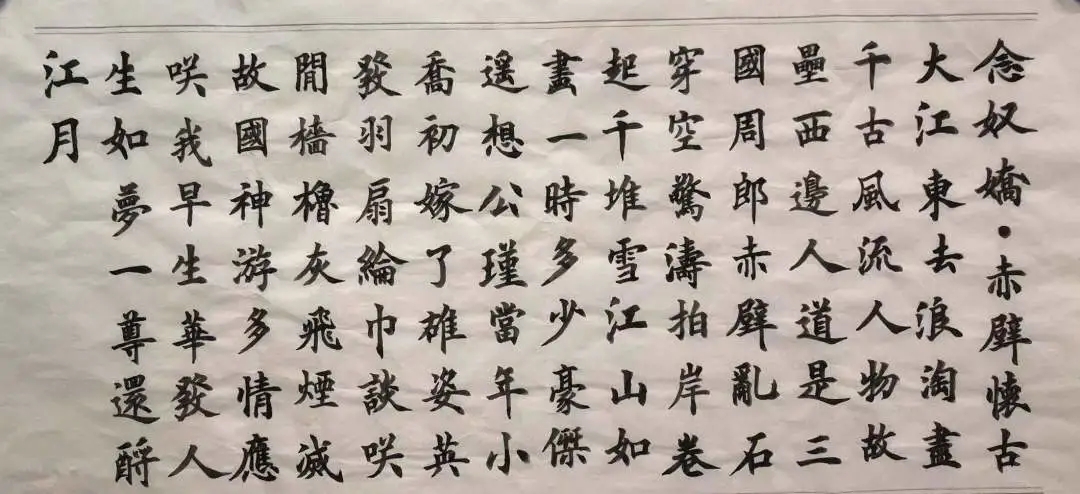 念奴嬌·赤壁懷古
大江東去浪淘盡
千古風流人物故
壘西邊人道是三
國周郎赤壁亂石
穿空驚濤拍岸卷
起千堆雪江山如
畫一時多少豪傑
遥想公瑾當年小
喬初嫁了雄姿英
發羽扇綸巾談咲
間檣櫓灰飛煙滅
故國神游多情應
咲我早生華發人
生如夢一尊還酹
江月